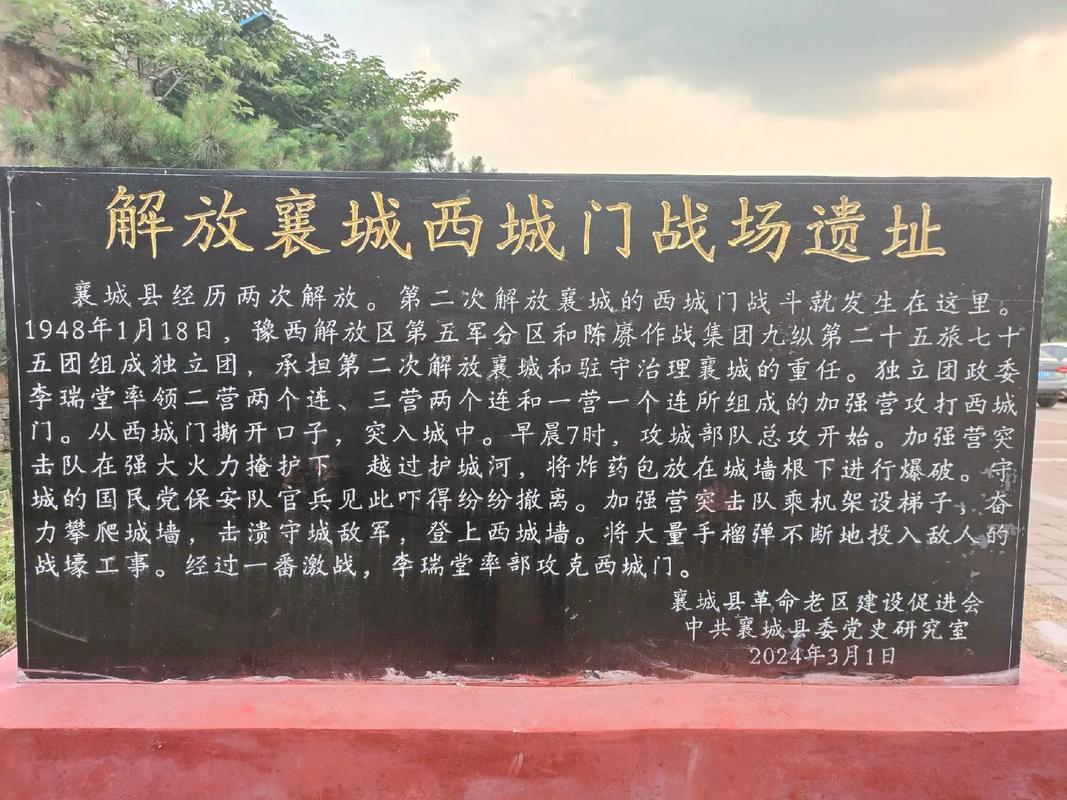 解放襄城西城门战场遗址
襄城县经历两次解放。第二次解放襄城的西城门战斗就发生在这里。
1948年1月18日，豫西解放区第五军分区和陈赓作战集团九纵第二十五旅七十
五团组成独立团，承担第二次解放襄城和驻守治理襄城的重任。独立团政委
李瑞堂率领二营两个连、三营两个连和一营一个连所组成的加强营攻打西城
门。从西城门撕开口子，突入城中。早晨7时，攻城部队总攻开始。加强营突
击队在强大火力掩护下 越过护城河，将炸药包放在城墙根下进行爆破。守
城的国民党保安队官兵见此吓得纷纷撤离。加强营突击队乘机架设梯子，奋
力攀爬城墙，击溃守城敌军，登上西城墙。将大量手榴弹不断地投入敌人的
战壕工事。经过一番激战，李瑞堂率部攻克西城门。
襄城县革命老区建设促进会
中共襄城县委党史研究室
2024年3月1日